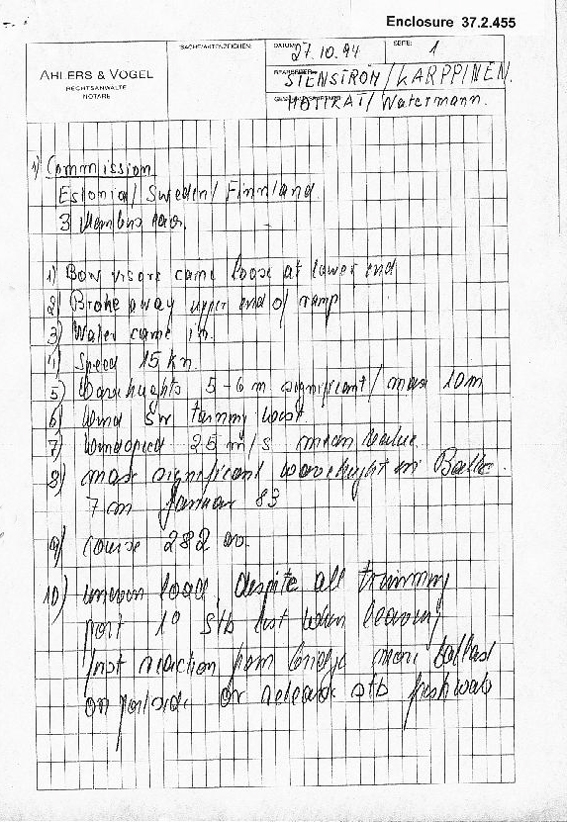 Enclosure 37.2.455
AHLERS & VOGEL
RECHTSANWÄLTE
NOTARE
SACHE/AKTENZEICHEN:
DATUM: 27.10.94
SEITE: 1
STENSTRÖM / KARPPINEN.
HOTIKAT / Watermann.
1) Commission
Estonia / Sweden / Finnland
3 Members each.
1) Bow visors came loose at lower end
2) Broke away upper end of ramp
3) Water came in.
4) Speed 15 kn.
5) Waveheights 5-6 m significant / max 10m
6) Wind SW turning West
7) Windspeed 25 m/s mean value
8) max significant waveheight in Baltic.
7 m Januar 83
9) course 282
10) uneven load, despite all trimming
port 1° stb list when leaving
first reaction from bridge more ballast
on portside or release stb freshwat